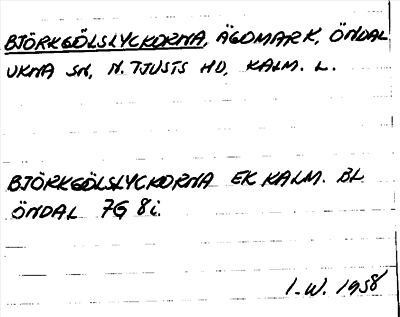 BJÖRKGÖLSLYCKORNA, ÄGOMARK, ÖNDAL
UKNA SN, N. TJUSTS HD, KALM. L.
BJÖRKGÖLSLYCKORNA EK KALM. BL
ÖNDAL 7G 8i.
I.W. 1958